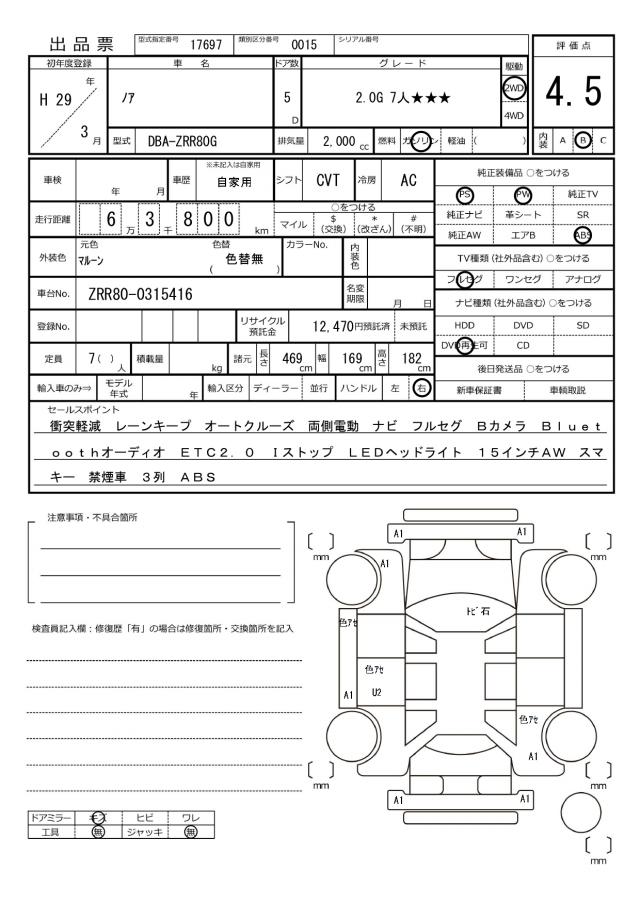 出品票 型式指定番号 17697 類別区分番号 0015 シリアル番号
評価点
4.5
初年度登録 車名 ドア数 グレード 駆動
H 29 年 ノア 5 D 2.0G 7人★★★ 2WD
3 月 4WD
型式 DBA-ZRR80G 排気量 2,000 cc 燃料 ガソリン 軽油 ( ) 内装 A B C
車検 年 月 車歴 ※未記入は自家用 自家用 シフト CVT 冷房 AC
走行距離 6 万 3 千 8 0 0 km ○をつける
マイル $ (交換) * (改ざん) # (不明)
外装色 元色 マルーン 色替 ( 色替無 ) カラーNo. 内装色
車台No. ZRR80-0315416 名変期限 月 日
登録No. リサイクル預託金 12,470円預託済 未預託
定員 7( )人 積載量 kg 諸元 長さ 469cm 幅 169cm 高さ 182cm
輸入車のみ⇒ モデル年式 年 輸入区分 ディーラー 並行 ハンドル 左 右
純正装備品 ○をつける
PS PW 純正TV
純正ナビ 革シート SR
純正AW エアB ABS
TV種類 (社外品含む) ○をつける
フルセグ ワンセグ アナログ
ナビ種類 (社外品含む) ○をつける
HDD DVD SD
DVD再生可 CD
後日発送品 ○をつける
新車保証書 車輌取説
セールスポイント
衝突軽減 レーンキープ オートクルーズ 両側電動 ナビ フルセグ Bカメラ Bluet
oothオーディオ ETC2.0 Iストップ LEDヘッドライト 15インチAW スマ
キー 禁煙車 3列 ABS
注意事項・不具合箇所
検査員記入欄：修復歴「有」の場合は修復箇所・交換箇所を記入
A1 A1
mm mm
A1
トビ石
色アセ
色アセ
A1 U2
色アセ
A1
mm mm
A1 A1
mm
ドアミラー キズ ヒビ ワレ
工具 無 ジャッキ 無